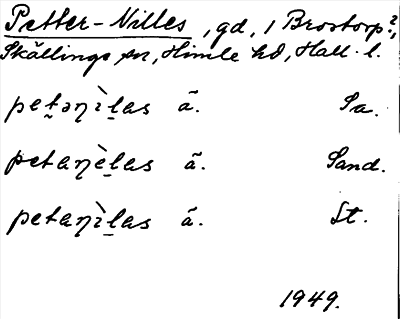 Petter-Nilles, gd, i Brostorp?,
Skällinge sn, Himle hd, Hall. l.
pet̰əŋìḻas ã. Sa.
petaŋèḻas ã. Sand.
petaŋìḻas ã. St.
1949.